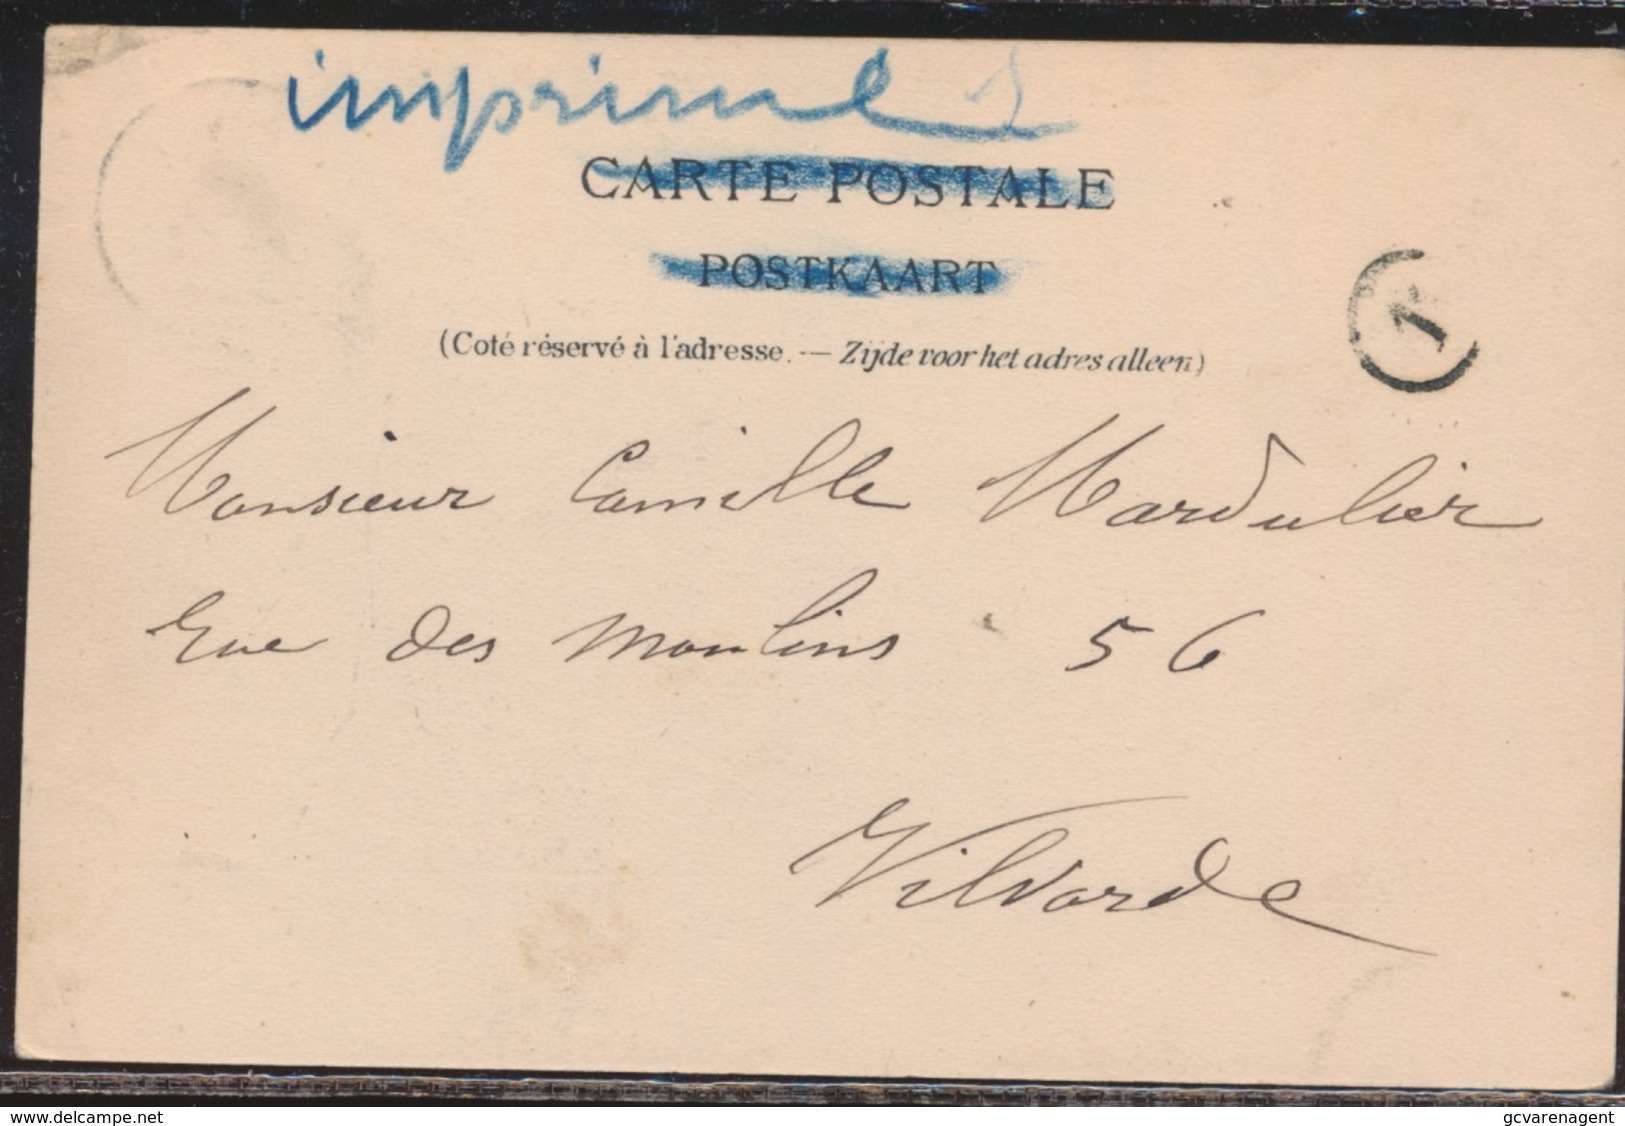 imprimés
CARTE POSTALE
POSTKAART
(Coté réservé à l'adresse. — Zijde voor het adres alleen)
1
Monsieur Camille Mardulier
Rue des Moulins 56
Vilvorde
www.delcampe.net
gcvarenagent